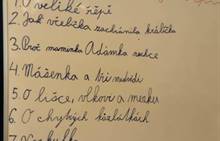 1. O veliké řepě
2. Jak včelička zachránila králíčka
3. Proč maminka Adámka
4. Mášenka a tři medvědi
5. O lišce, vlkovi a
6. O chytrých kůzlátkách
7.